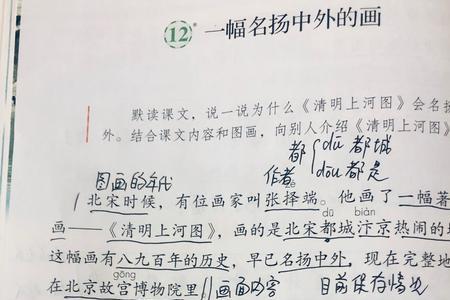 12* 一幅名扬中外的画
默读课文，说一说为什么《清明上河图》会名扬
外。结合课文内容和图画，向别人介绍《清明上河图》
都 dū 都城
dōu 都是
图画的年代
作者
北宋时候，有位画家叫张择端。他画了一幅著
dū biàn
画——《清明上河图》，画的是北宋都城汴京热闹的
这幅画有八九百年的历史，早已名扬中外，现在完整地
gōng
在北京故宫博物院里。画面内容 目前保存情况